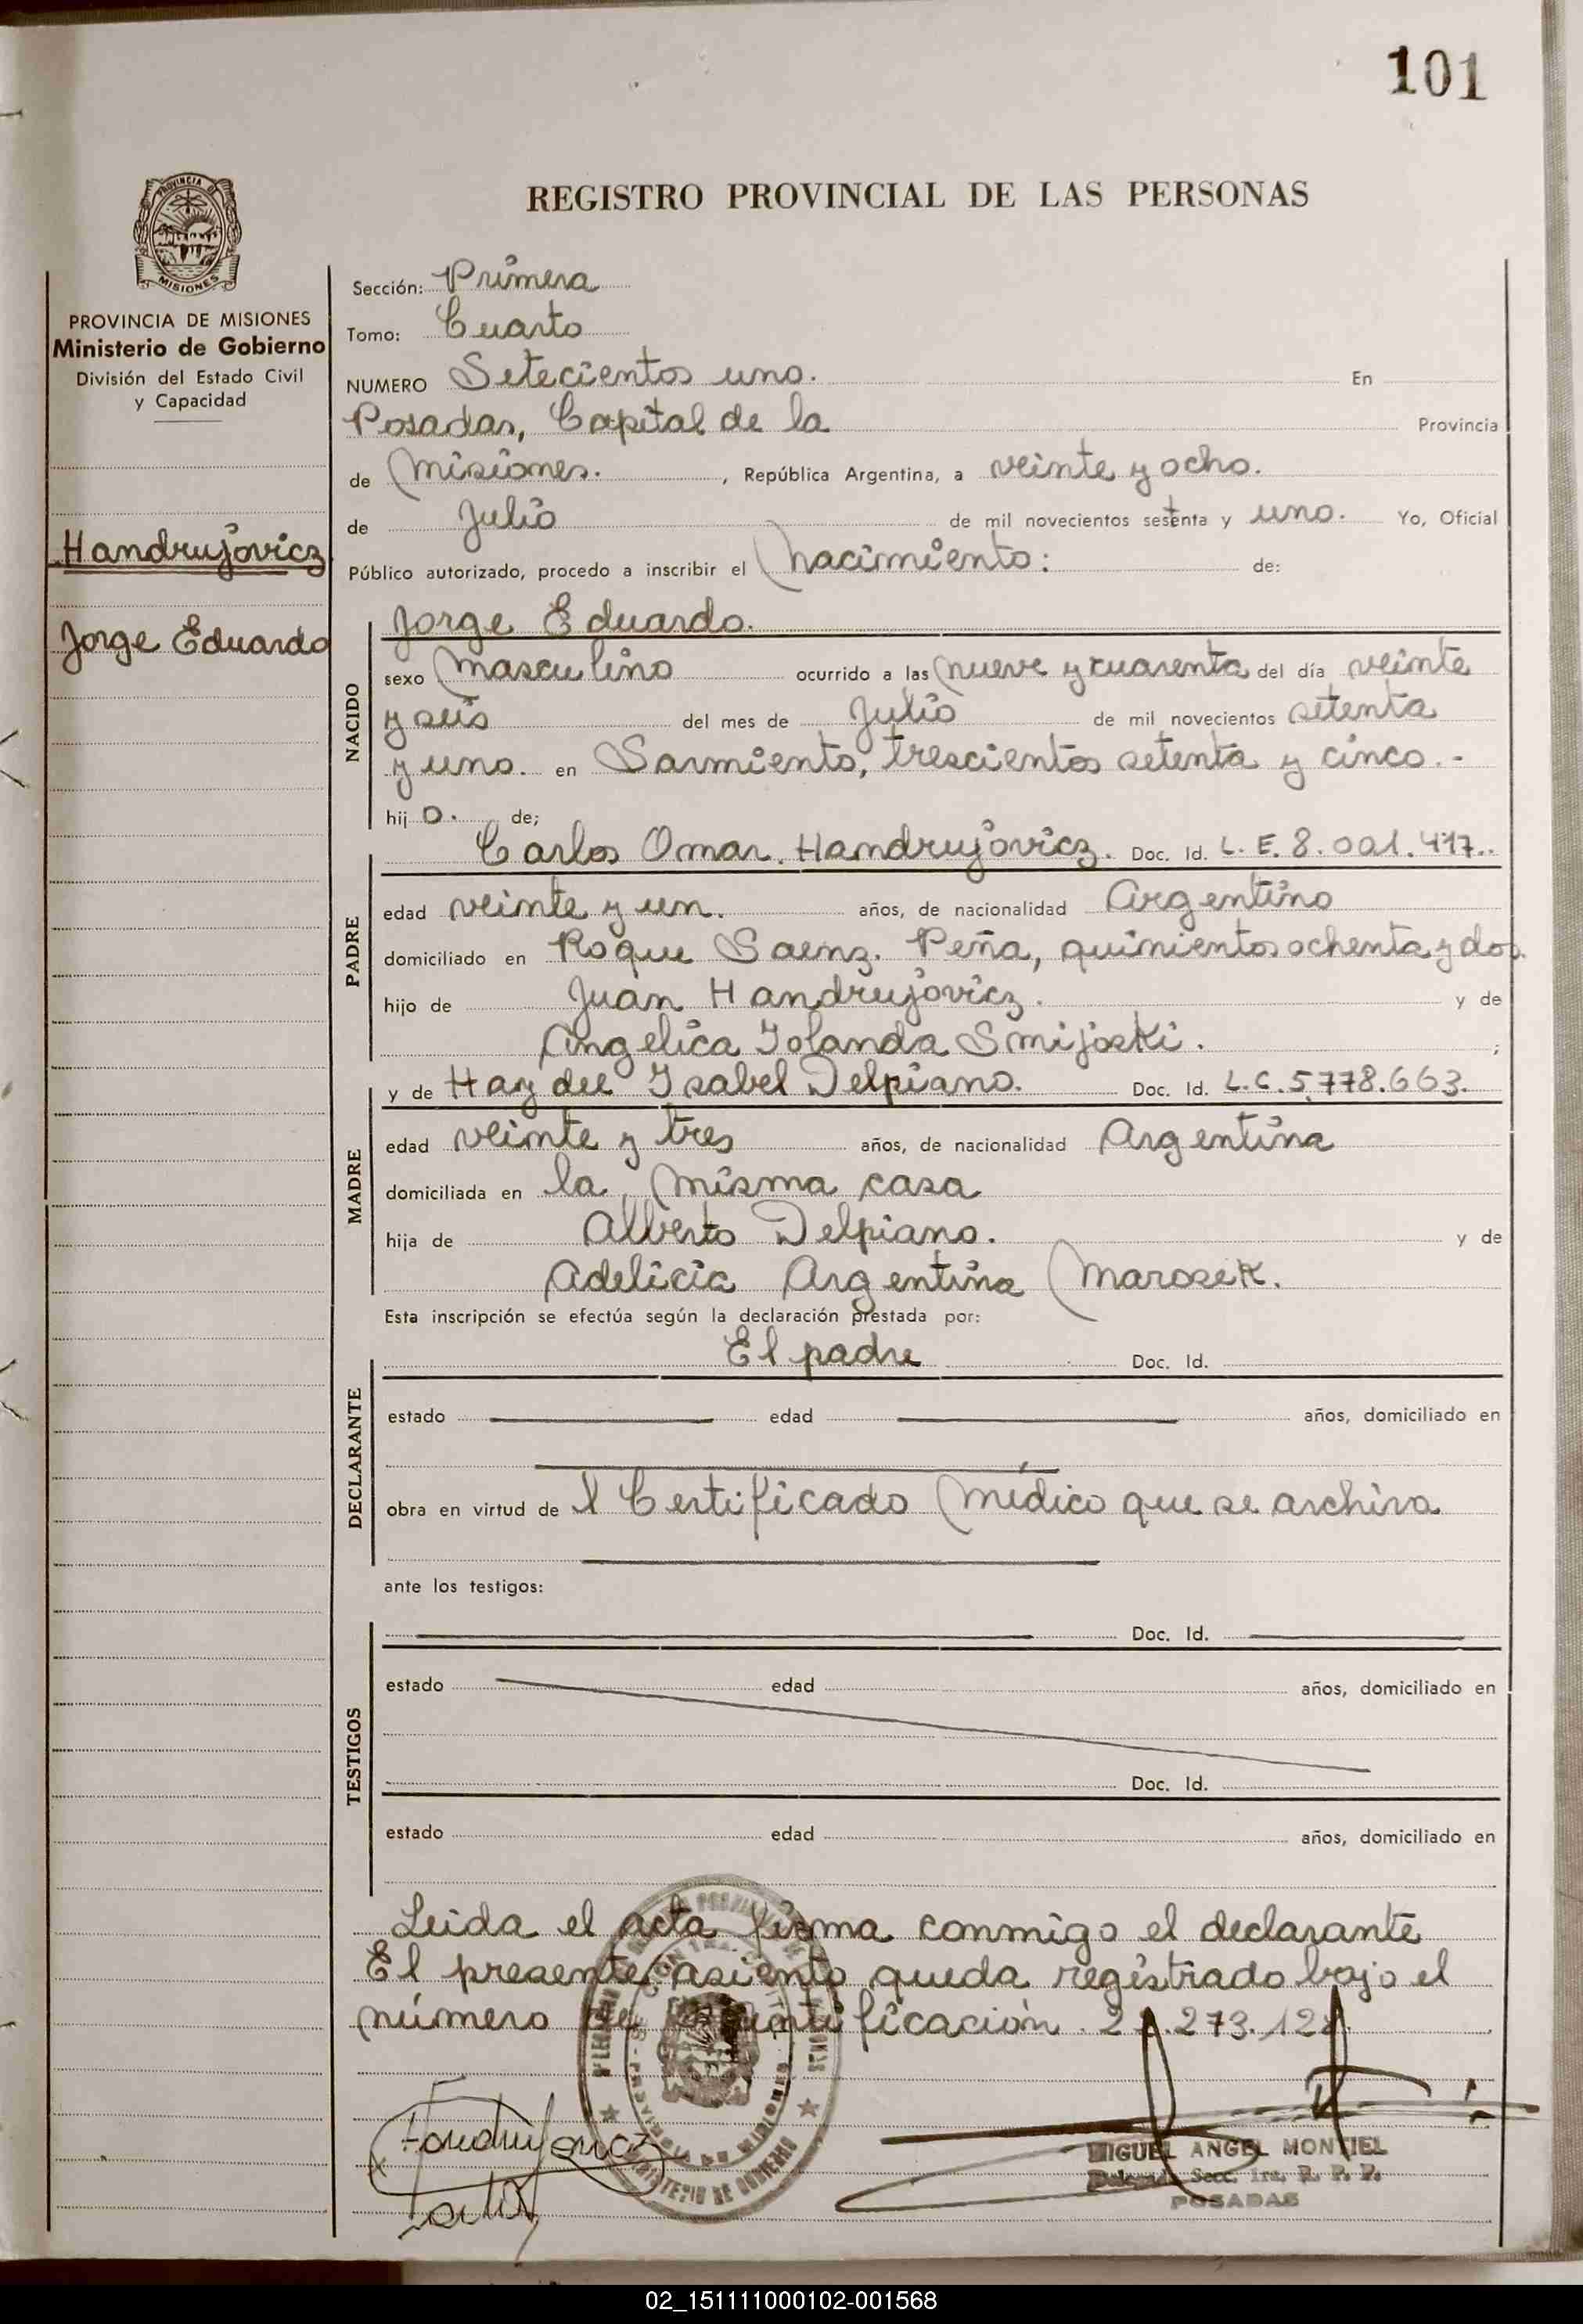 101
REGISTRO PROVINCIAL DE LAS PERSONAS
PROVINCIA DE
MISIONES
PROVINCIA DE MISIONES
Ministerio de Gobierno
División del Estado Civil
y Capacidad
Handrujovicz
Jorge Eduardo
Sección: Primera
Tomo: Cuarto
NUMERO Setecientos uno. En
Posadas, Capital de la Provincia
de Misiones. , República Argentina, a veinte y ocho.
de Julio de mil novecientos setenta y uno. Yo, Oficial
Público autorizado, procedo a inscribir el nacimiento: de:
NACIDO
Jorge Eduardo.
sexo masculino ocurrido a las nueve y cuarenta del día veinte
y seis del mes de Julio de mil novecientos setenta
y uno. en Sarmiento, trescientos setenta y cinco.-
hij o. de;
PADRE
Carlos Omar. Handrujovicz. Doc. Id. L. E. 8.001.417..
edad veinte y un. años, de nacionalidad Argentino
domiciliado en Roque Saenz. Peña, quinientos ochenta y dos.
hijo de Juan Handrujovicz. y de
Angelica Iolanda Smijoski. ;
MADRE
y de Haydee Isabel Delpiano. Doc. Id. L.C. 5.778.663.
edad veinte y tres años, de nacionalidad Argentina
domiciliada en la misma casa
hija de Alberto Delpiano. y de
Adelicia Argentina Marosek.
Esta inscripción se efectúa según la declaración prestada por:
DECLARANTE
El padre Doc. Id.
estado edad años, domiciliado en
obra en virtud de l Certificado médico que se archiva
ante los testigos:
TESTIGOS
Doc. Id.
estado edad años, domiciliado en
Doc. Id.
estado edad años, domiciliado en
Leida el acta firma conmigo el declarante
El presente asiento queda registrado bajo el
número de identificación 273.
MIGUEL ANGEL MONTIEL
Secc. 1ra. R. P. P.
POSADAS
02_151111000102-001568